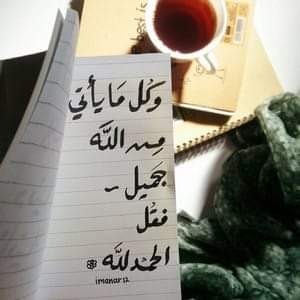 وَكُل مَا يَأتي
مِن اللَّه
جَميل ~
فقُل
الحمدُللَّه
imanar12